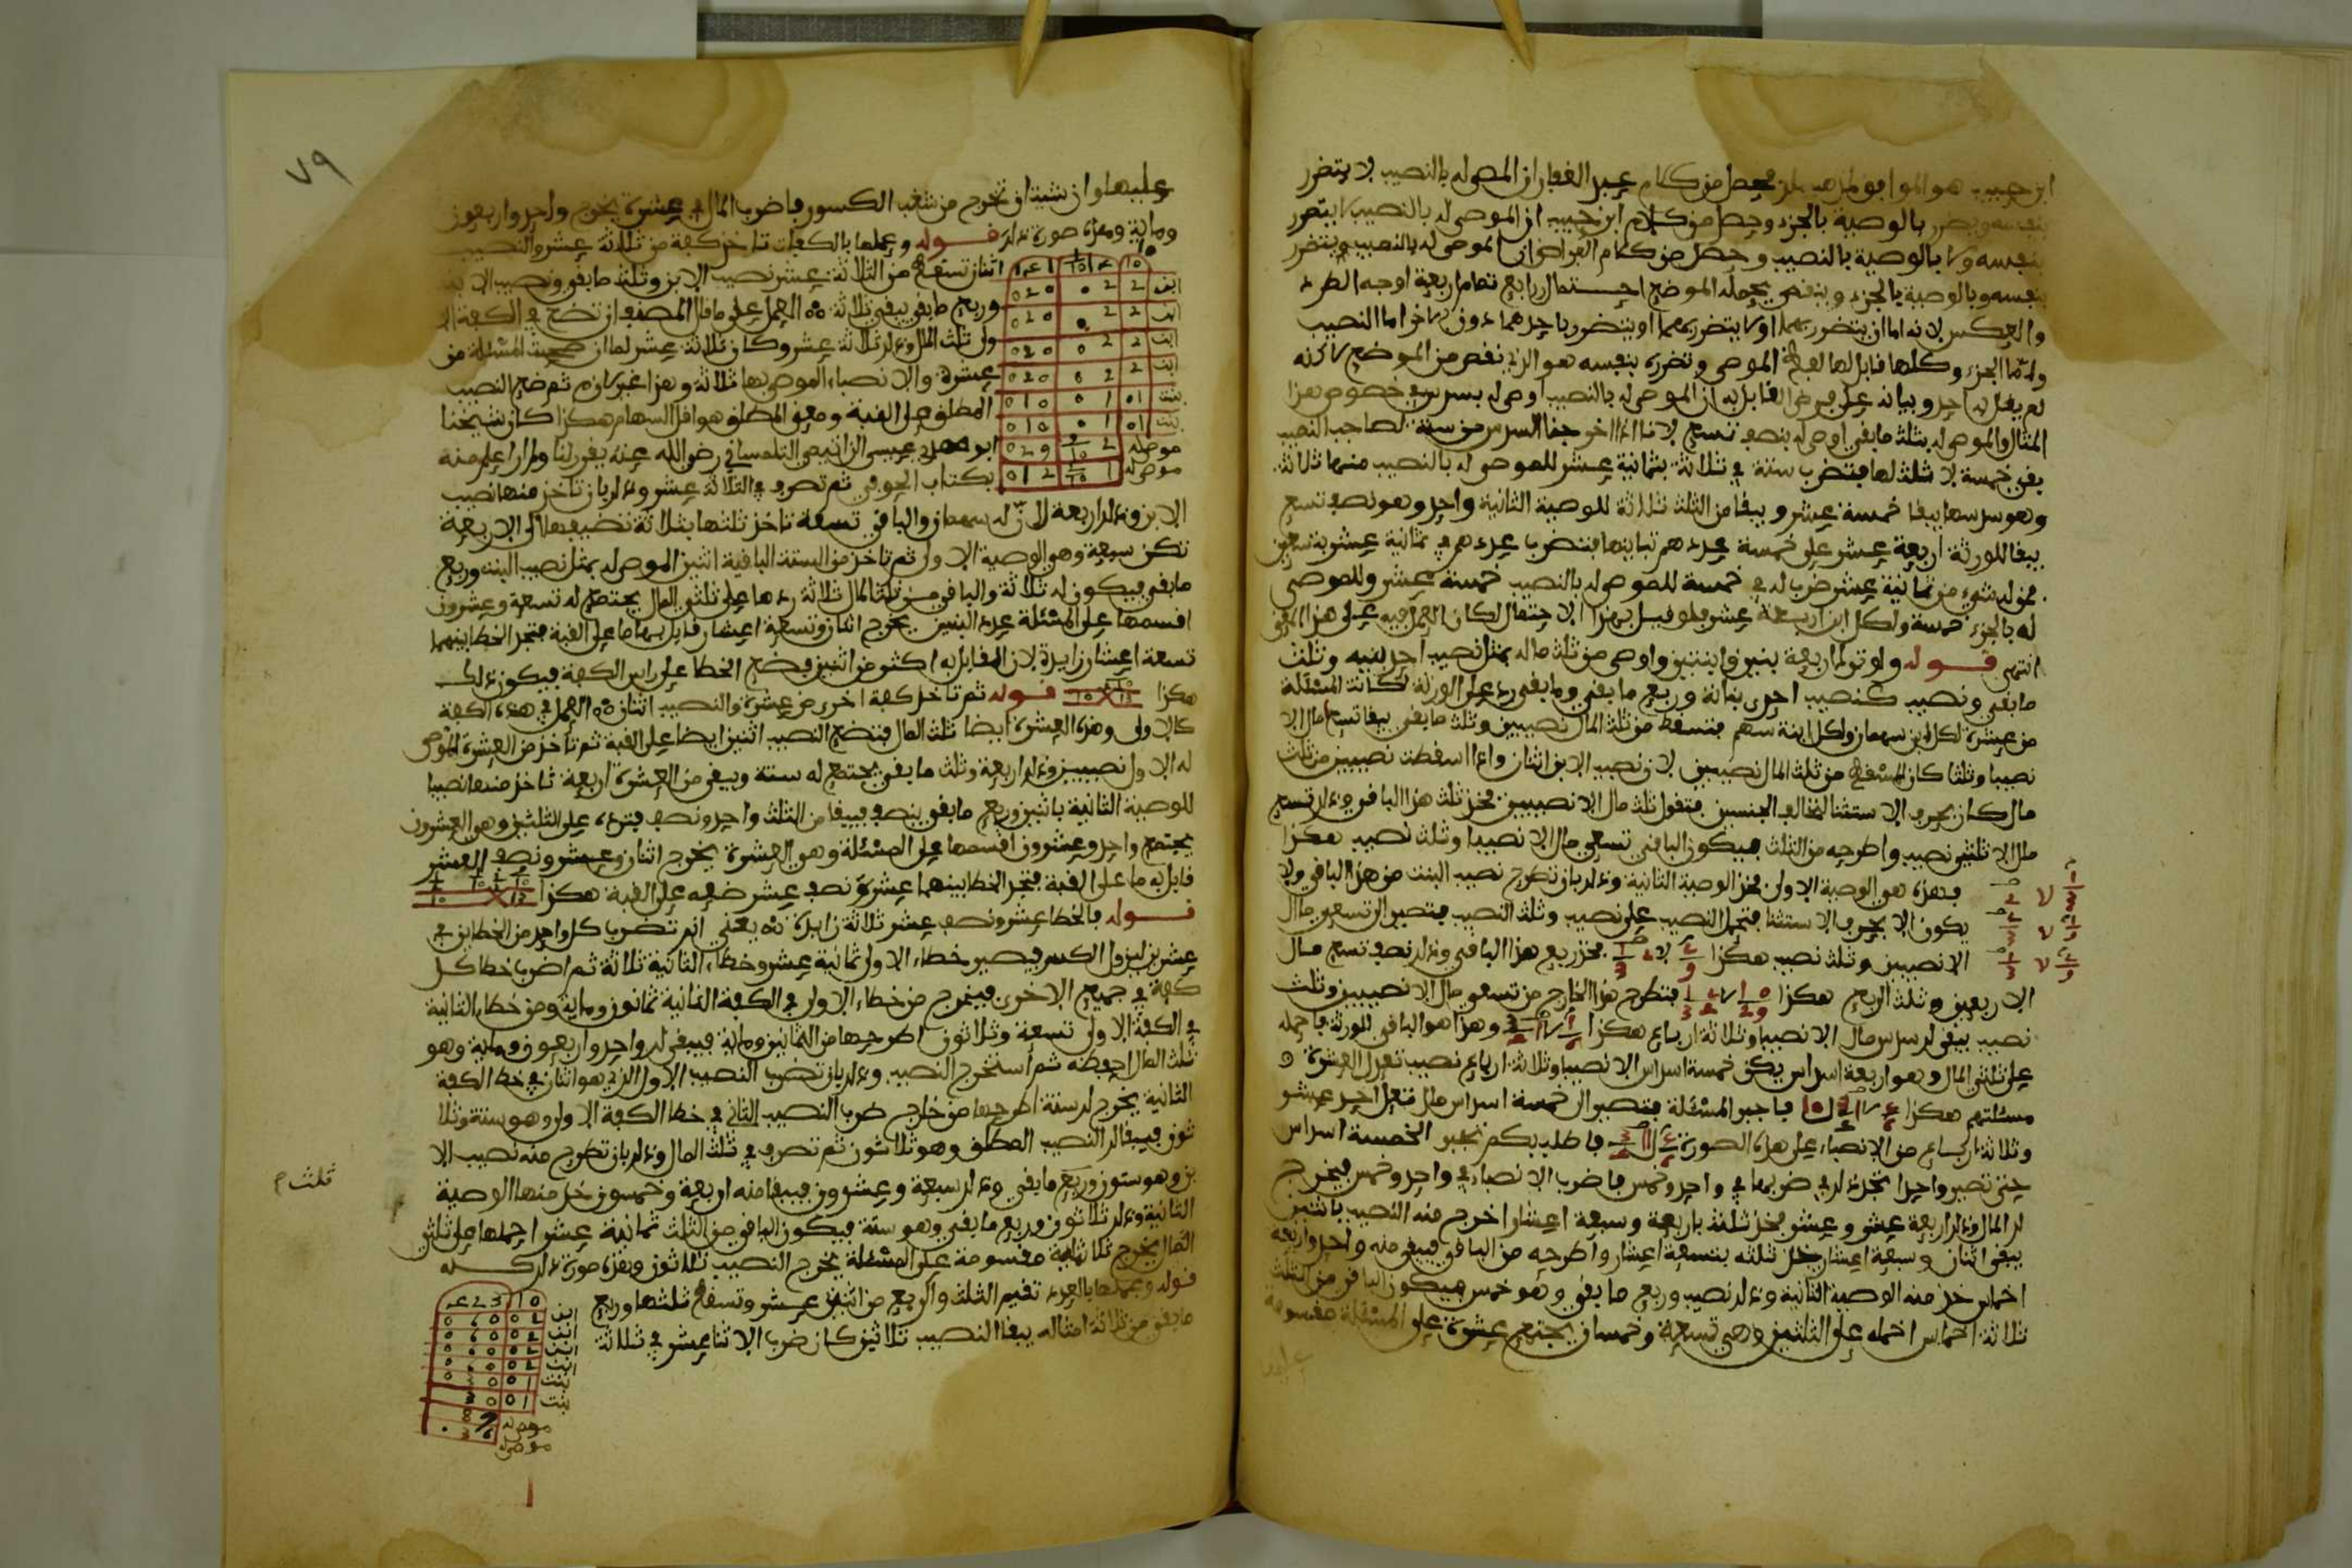 ابن حبيب هو الموافق لمذهب من كلام عبد الغفار ان الموصى له بالنصيب لا يتضرر
بنفسه ويضر بالوصية بالجزء وحصل من كلام ابن حبيب ان الموصى له بالنصيب لا يتضرر
بنفسه ولا بالوصية بالنصيب وحصل من كلام الفراض ان الموصى له بالنصيب يتضرر
بنفسه وبالوصية بالجزء وينقص يحمله الموضع احتمال رابع تمام اربعة اوجه الطرد
والعكس لانه اما ان يتضرر بهما او لا يتضرر بهما او يتضرر باحدهما دون الاخر اما النصيب
واما الجزء وكلها قابل لها لفظ الموصي وتضرره بنفسه هو الذي نقص من الموضع لاكنه
لم يقل به احد وبيانه على فرض القابل به ان الموصى له بالنصيب اوصي له بسدس في خصوص هذا
المثال والموصى له بثلث ما بقي اوصي له بنصف تسع لانا اذا اخرجنا السدس من ستة لصاحب النصيب
بقي خمسة لا ثلث لها فتضرب ستة في ثلاثة بثمانية عشر للموصى له بالنصيب منها ثلاثة
وهو سدسها يبقا خمسة عشر ويبقا من الثلث ثلاثة للوصية الثانية واحد وهو نصف تسع
يبقا للورثة اربعة عشر على خمسة عددهم تباينها فتضرب عددهم في ثمانية عشر بتسعين
فمن له شيء من ثمانية عشر ضرب له في خمسة للموصى له بالنصيب خمسة عشر وللموصى
له بالجزء خمسة ولكل ابن اربعة عشر فلو قيل بهذا الاحتمال لكان العمل فيه على هذا المعنى
انتهى قوله ولو ترك اربعة بنين وابنتين واوصى من ثلث ماله بمثل نصيب احد بنيه وثلث
ما بقي ونصيب كنصيب احدى بناته وربع ما بقي وما بقي رد على الورثة لكانت المسئلة
من عشرة لكل ابن سهمان ولكل ابنة سهم فتسقط من ثلث المال نصيبين وثلث ما بقي يبقا تسعا مال الا
نصيبا وثلثا كان المسقط من ثلث المال نصيبين لان نصيب الابن اثنان واذا اسقطت نصيبين من ثلث
مال كان بحرف الاستثنا لتخالف الجنسين فتقول ثلث مال الا نصيبين فخذ ثلث هذا الباقي وذلك تسع
مال الا ثلثي نصيب واطرحه من الثلث فيكون الباقي تسعي مال الا نصيبا وثلث نصيب هكذا
فهذه هو الوصية الاولى فخذ الوصية الثانية وذلك بان تطرح نصيب البنت من هذا الباقي ولا
يكون الا بحرف الاستثنا فتحمل النصيب على نصيب وثلث النصيب فتصير الى تسعي مال
الا نصيبين وثلث نصيب هكذا فخذ ربع هذا الباقي وذلك نصف تسع مال
الا ربعين وثلث الربع هكذا فتطرح هذا الخارج من تسعي مال الا نصيبين وثلث
نصيب يبقى لك سدس مال الا نصيبا وثلاثة ارباع هكذا وهذا هو الباقي للورثة فاحمله
على ثلثي المال وهو اربعة اسداس يكن خمسة اسداس الا نصيبا وثلاثة ارباع نصيب تعدل العشرة
مسئلتهم هكذا فاجبر المسئلة فتصير الى خمسة اسداس مال تعدل احد عشر
وثلاثة ارباع من الانصباء على هذه الصورة فاطلب بكم تجبر الخمسة اسداس
حتى تصير واحدا تجد ذلك في ضربها في واحد وخمس فاضرب الانصباء في واحد وخمس فيخرج
لك المال وذلك اربعة عشر وعشر فخذ ثلثه باربعة وسبعة اعشار اخرج منه النصيب باثنين
يبقى اثنان وسبعة اعشار خذ ثلثه بتسعة اعشار واطرحه من الباقي فيبقى منه واحد واربعة
اخماس خذ منه الوصية الثانية وذلك نصيب وربع ما بقي وهو خمس فيكون الباقي من الثلث
ثلاثة اخماس احمله على الثلثين وهي تسعة وخمسان يجتمع عشرة على المسئلة مقسومة
عليها
٧٩
عليها وان شيت ان تخرج من شغب الكسور فاضرب المال في عشرة يخرج واحد واربعون
وماية وهذه صورة ذلك قوله وعملها بالكفات تاخذ كفة من ثلاثة عشر والنصيب
اثنان تسقط من الثلاثة عشر نصيب الابن وثلث ما بقي ونصيب الابنة
وربع ما بقي يبقى ثلاثة هه العمل على ما قال المصنف ان تضع في الكفة
ولى ثلث المال وذلك ثلاثة عشر وكان ثلاثة عشر لما ان صحت المسئلة من
عشرة والانصباء الموصى بها ثلاثة وهذا غير لازم ثم ضع النصيب
المطلق على القبة ومعنى المطلق هو اقل السهام هكذا كان شيخنا
ابو مهدي عيسى الزاتيمي التلمساني رضي الله عنه يقرر لنا ولم ار اعلم منه
بكتاب الحوفي ثم تصرف في الثلاثة عشر وذلك بان تاخذ منها نصيب
ابن
ابن
ابن
ابن
بنت
بنت
موصى له
موصى له
الابن وذلك اربعة لان له سهمان والباقي تسعة تاخذ ثلثها بثلاثة تضيفها الى الاربعة
تكن سبعة وهي الوصية الاولى ثم تاخذ من الستة الباقية اثنين الموصى له بمثل نصيب البنت وربع
ما بقي فيكون له ثلاثة والباقي من ثلث المال ثلاثة ردها على ثلثي المال يجتمع له تسعة وعشرون
اقسمها على المسئلة عدد البنين يخرج اثنان وتسعة اعشار قابل بها ما على القبة فتجد الخطا بينهما
تسعة اعشار زايدة لان المقابل به اكثر من اثنين فضع الخطا على راس الكفة فيكون ذلك
هكذا قوله ثم تاخذ كفة اخرى من عشرة والنصيب اثنان هه العمل في هذه الكفة
كالاولى وهذه العشرة ايضا ثلث المال فتضع النصيب اثنين ايضا على القبة ثم تاخذ من العشرة للموصى
له الاول نصيبين وذلك اربعة وثلث ما بقي يجتمع له ستة ويبقى من العشرة اربعة تاخذ منها نصيبا
للوصية الثانية باثنين وربع ما بقي بنصف فيبقا من الثلث واحد ونصف فترده على الثلثين وهو العشرون
يجتمع واحد وعشرون اقسمها على المسئلة وهو العشرة يخرج اثنان وعشر ونصف العشر
قابل به ما على القبة فتجد الخطا بينهما عشر ونصف عشر ضعه على القبة هكذا
قوله فالخطا عشر ونصف عشر ثلاثة زايدة هه يعني انه تضرب كل واحد من الخطاين في
عشرين ليزول الكسر فيصير خطاء الاول ثمانية عشر وخطاء الثانية ثلاثة ثم اضرب خطا كل
كفة في جميع الاخرى فيخرج من خطاء الاولى في الكفة الثانية ثمانون وماية ومن خطاء الثانية
في الكفة الاولى تسعة وثلاثون اطرحها من الثمانين وماية فيبقى لك واحد واربعون وماية وهو
ثلث المال احفظه ثم استخرج النصيب وذلك بان تضرب النصيب الاول الذي هو اثنان في خطا الكفة
الثانية يخرج لك ستة اطرحها من خارج ضرب النصيب الثاني في خطا الكفة الاولى وهو ستة وثلا
ثون فيبقا لك النصيب المطلق وهو ثلاثون ثم تصرف في ثلث المال وذلك بان تطرح منه نصيب الا
بن وهو ستون وربع ما بقي وذلك سبعة وعشرون فيبقا منه اربعة وخمسون خذ منها الوصية
ثلث م
الثانية وذلك ثلاثون وربع ما بقي وهو ستة فيكون الباقي من الثلث ثمانية عشر احملها على ثلثي
المال يخرج ثلاثماية مقسومة على المسئلة يخرج النصيب ثلاثون وهذه صورة ذلك كله
قوله وعملها بالعدد تقيم الثلث والربع من اثني عشر وتسقط ثلثها وربع
ما بقي من ثلاثة امثاله يبقا النصيب ثلاثين كان ضرب الاثنا عشر في ثلاثة
ابن
ابن
ابن
ابن
بنت
بنت
موصى له
موصى له